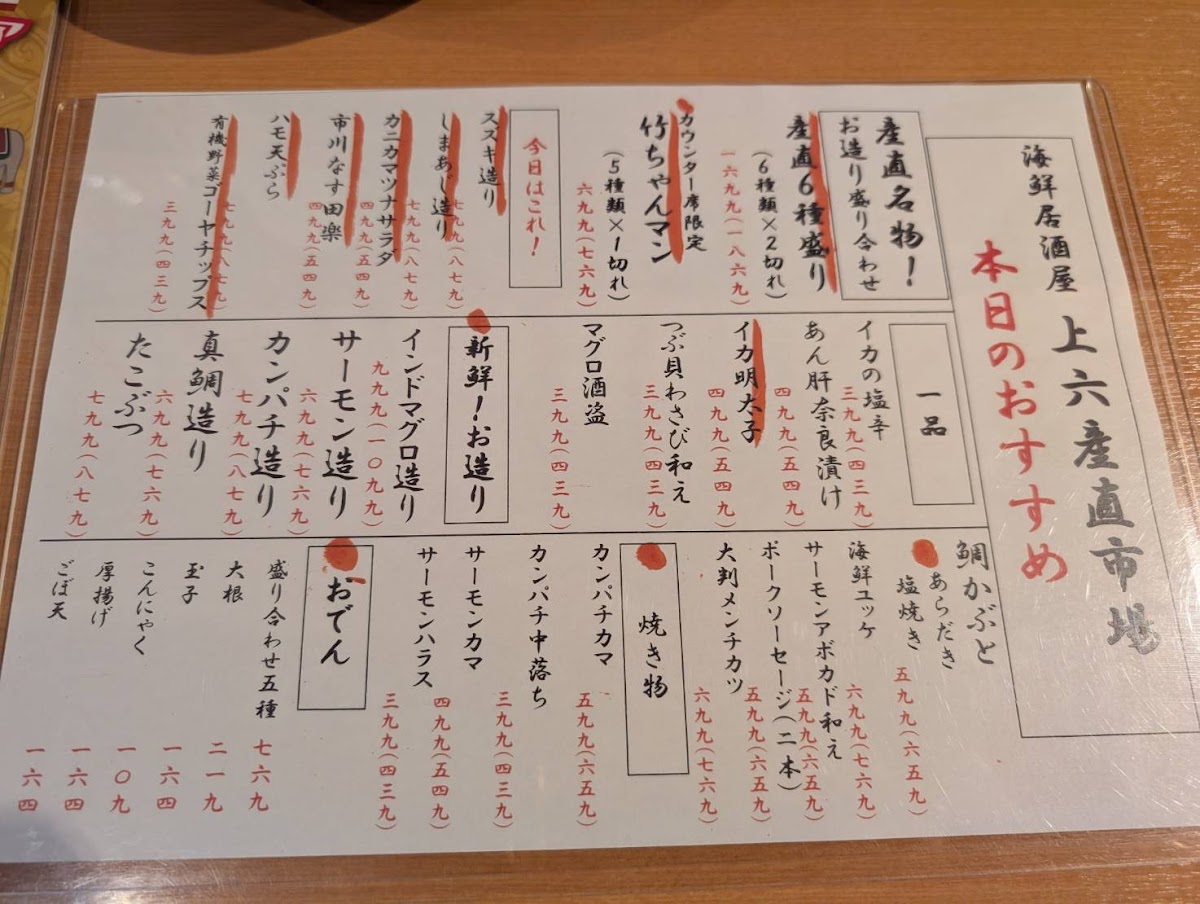 海鮮居酒屋 上六産直市場
本日のおすすめ
産直名物!
お造り盛り合わせ
産直6種盛り
(6種類×2切れ)
一六九九(一八六九)
カウンター席限定
竹ちゃんマン
(5種類×1切れ)
六九九(七六九)
今日はこれ!
スズキ造り
七九九(八七九)
しまあじ造り
七九九(八七九)
カニカマツナサラダ
四九九(五四九)
市川なす田楽
四九九(五四九)
ハモ天ぷら
七九九(八七九)
有機野菜ゴーヤチップス
三九九(四三九)
一品
イカの塩辛
三九九(四三九)
あん肝奈良漬け
四九九(五四九)
イカ明太子
四九九(五四九)
つぶ貝わさび和え
三九九(四三九)
マグロ酒盗
三九九(四三九)
新鮮!お造り
インドマグロ造り
九九九(一〇九九)
サーモン造り
六九九(七六九)
カンパチ造り
七九九(八七九)
真鯛造り
六九九(七六九)
たこぶつ
七九九(八七九)
鯛かぶと
あらだき
塩焼き
五九九(六五九)
海鮮ユッケ
六九九(七六九)
サーモンアボカド和え
五九九(六五九)
ポークソーセージ(二本)
五九九(六五九)
大判メンチカツ
六九九(七六九)
焼き物
カンパチカマ
五九九(六五九)
カンパチ中落ち
三九九(四三九)
サーモンカマ
四九九(五四九)
サーモンハラス
三九九(四三九)
おでん
盛り合わせ五種
七六九
大根
二一九
玉子
一六四
こんにゃく
一〇九
厚揚げ
一六四
ごぼ天
一六四